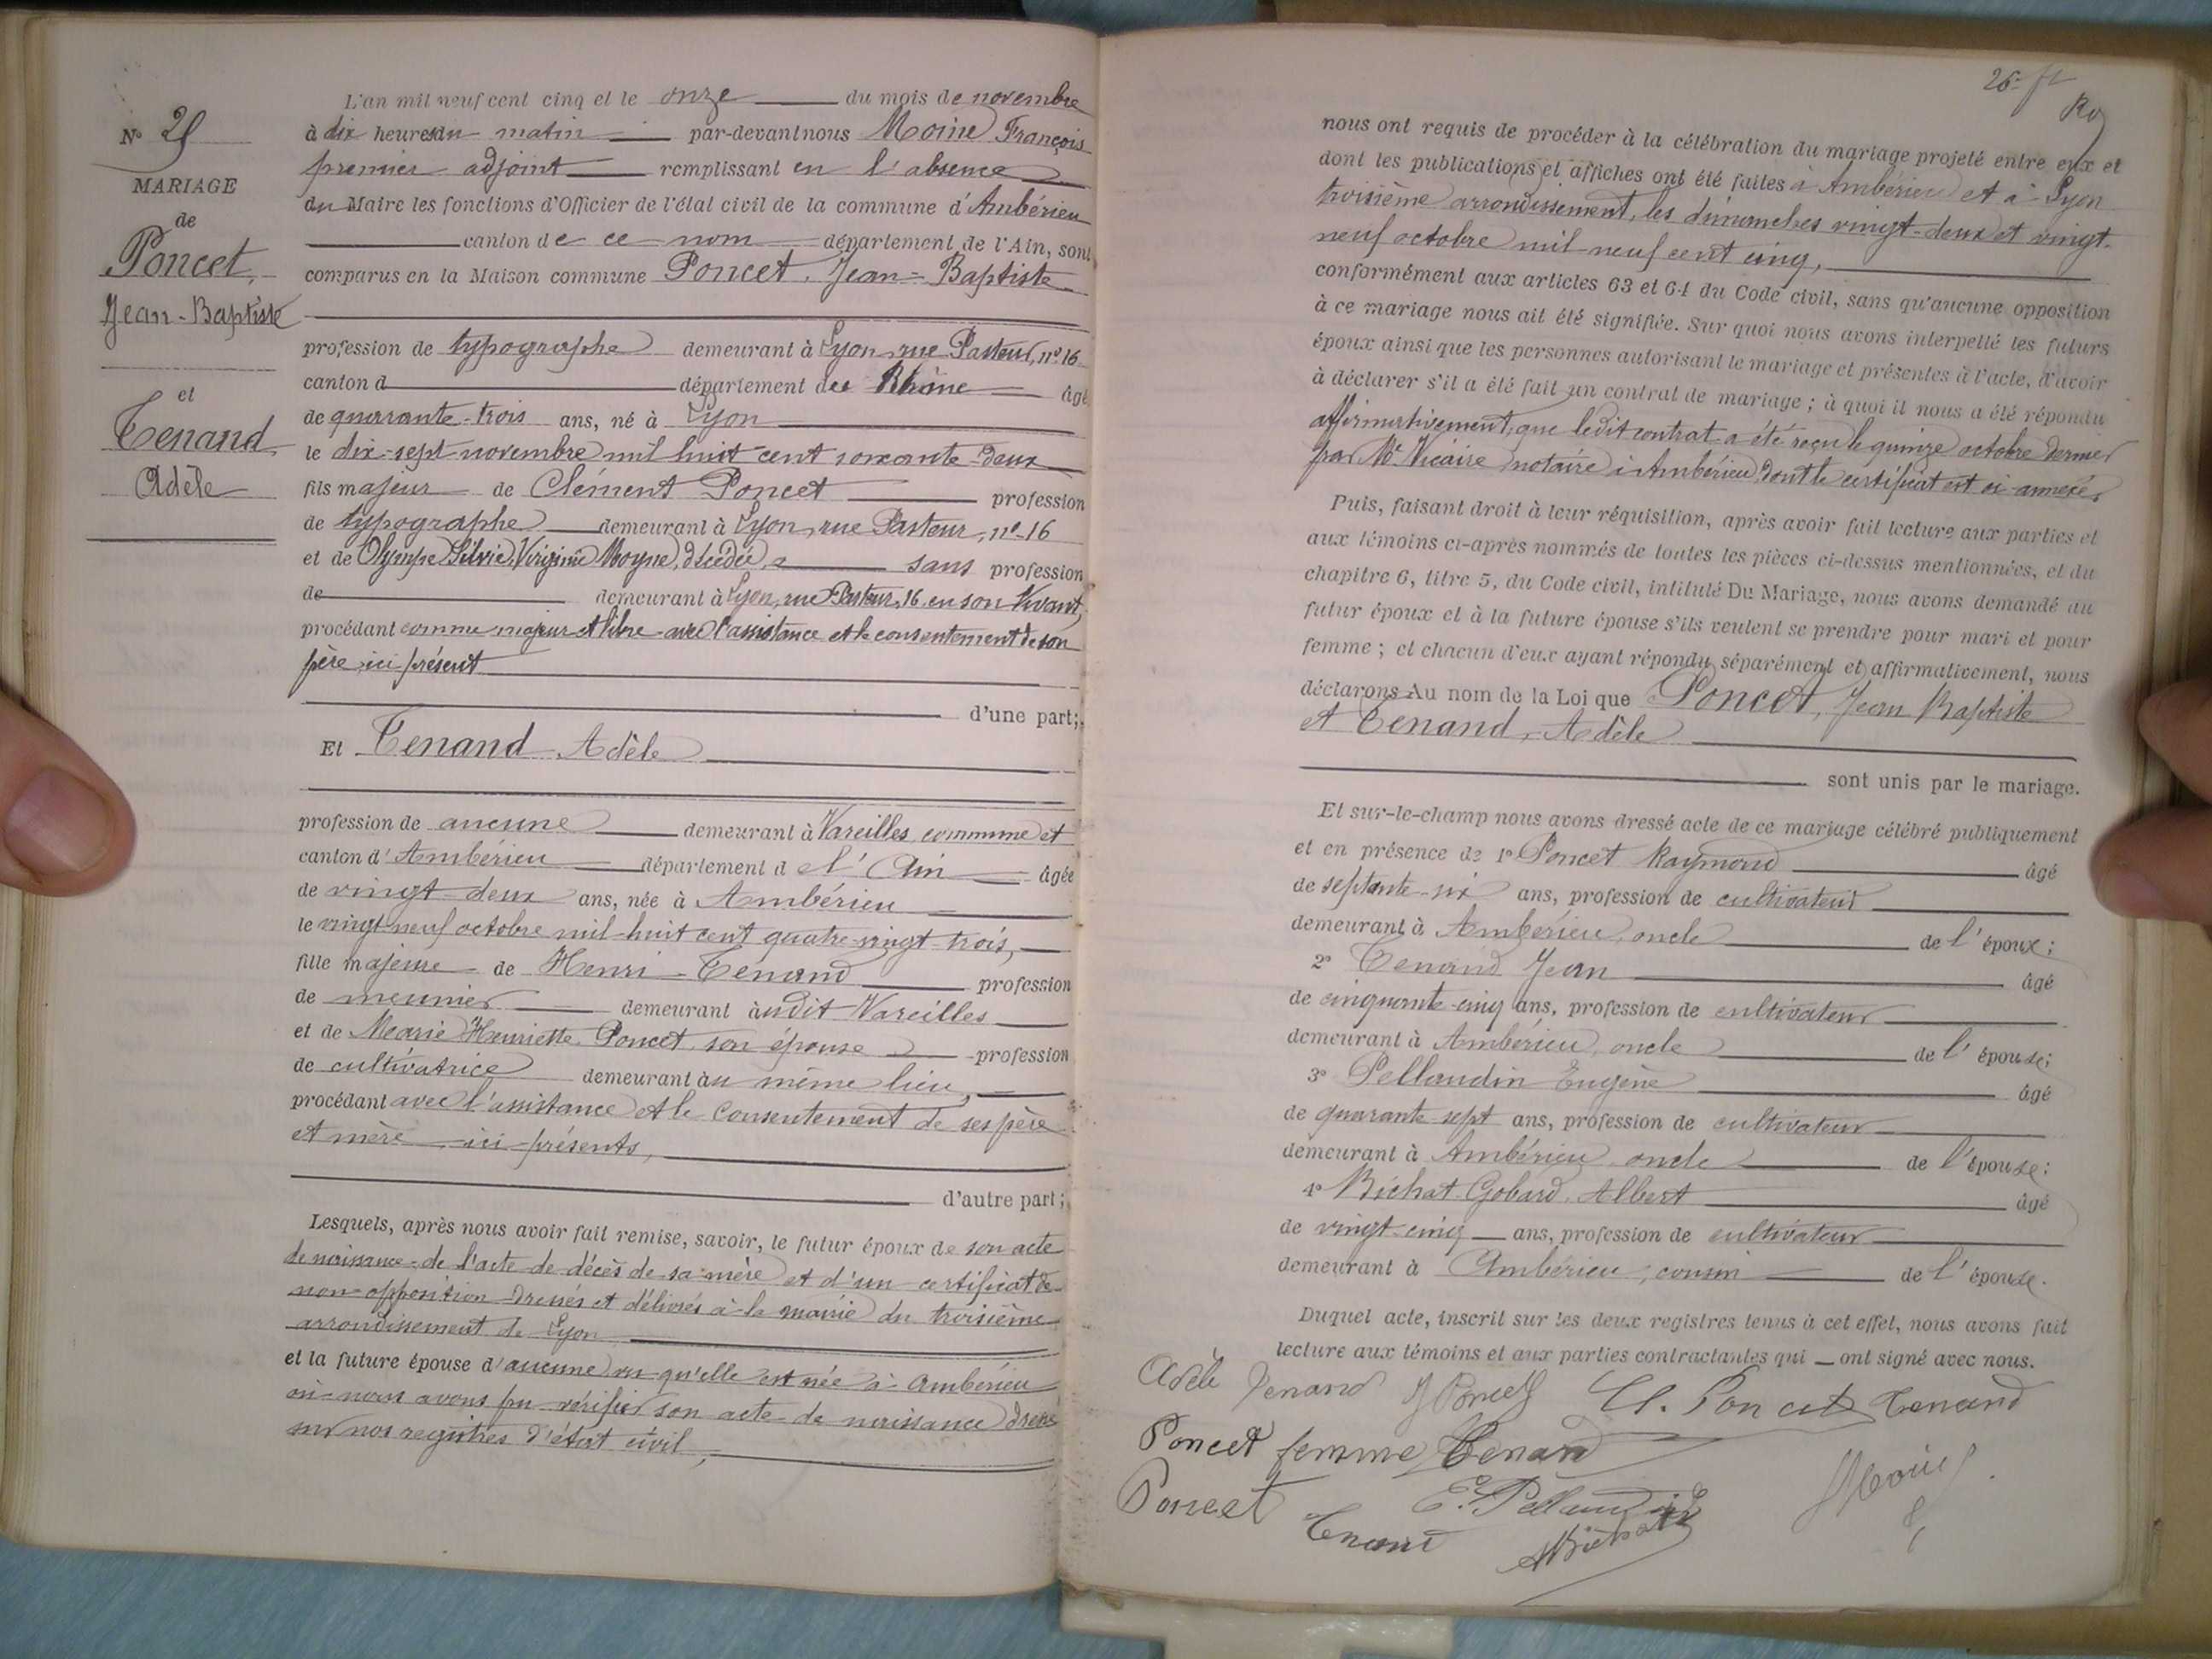 N° 25
MARIAGE
de
Poncet,
Jean-Baptiste
et
Tenand
Adèle
L'an mil neuf cent cinq et le onze du mois de novembre
à dix heures du matin par-devant nous Moine François
premier adjoint remplissant en l'absence
du Maire les fonctions d'Officier de l'état civil de la commune d'Ambérieu
canton de ce nom département de l'Ain, sont
comparus en la Maison commune Poncet, Jean-Baptiste
profession de typographe demeurant à Lyon, rue Pasteur, n° 16
canton d département du Rhône âgé
de quarante-trois ans, né à Lyon
le dix-sept novembre mil huit cent soixante-deux
fils majeur de Clément Poncet profession
de typographe demeurant à Lyon, rue Pasteur, n° 16
et de Olympe Silvie Virginie Moyne, décédée, sans profession
de demeurant à Lyon, rue Pasteur, 16 en son vivant,
procédant comme majeur et libre avec l'assistance et le consentement de son
père ici présent
d'une part;
Et Tenand Adèle
profession de aucune demeurant à Vareilles, commune et
canton d'Ambérieu département de l'Ain âgée
de vingt-deux ans, née à Ambérieu
le vingt-neuf octobre mil-huit cent quatre-vingt-trois,
fille majeure de Henri Tenand profession
de meunier demeurant audit Vareilles
et de Marie Henriette Poncet son épouse profession
de cultivatrice demeurant au même lieu,
procédant avec l'assistance et le consentement de ses père
et mère ici présents,
d'autre part;
Lesquels, après nous avoir fait remise, savoir, le futur époux de son acte
de naissance de l'acte de décès de sa mère et d'un certificat de
non-opposition dressés et délivrés à la mairie du troisième
arrondissement de Lyon
et la future épouse d'aucune vu qu'elle est née à Ambérieu
où nous avons pu vérifier son acte de naissance dressé
sur nos registres d'état civil,
26
nous ont requis de procéder à la célébration du mariage projeté entre eux et
dont les publications et affiches ont été faites à Ambérieu et à Lyon
troisième arrondissement, les dimanches vingt-deux et vingt-
neuf octobre mil-neuf cent cinq,
conformément aux articles 63 et 64 du Code civil, sans qu'aucune opposition
à ce mariage nous ait été signifiée. Sur quoi nous avons interpellé les futurs
époux ainsi que les personnes autorisant le mariage et présentes à l'acte, d'avoir
à déclarer s'il a été fait un contrat de mariage; à quoi il nous a été répondu
affirmativement, que ledit contrat a été reçu le quinze octobre dernier
par Me Vicaire notaire à Ambérieu, dont le certificat est ci-annexé,
Puis, faisant droit à leur réquisition, après avoir fait lecture aux parties et
aux témoins ci-après nommés de toutes les pièces ci-dessus mentionnées, et du
chapitre 6, titre 5, du Code civil, intitulé Du Mariage, nous avons demandé au
futur époux et à la future épouse s'ils veulent se prendre pour mari et pour
femme; et chacun d'eux ayant répondu séparément et affirmativement, nous
déclarons Au nom de la Loi que Poncet, Jean Baptiste
et Tenand, Adèle
sont unis par le mariage.
Et sur-le-champ nous avons dressé acte de ce mariage célébré publiquement
et en présence de 1° Poncet Raymond âgé
de septante-six ans, profession de cultivateur
demeurant à Ambérieu, oncle de l'époux;
2° Tenand Jean âgé
de cinquante-cinq ans, profession de cultivateur
demeurant à Ambérieu, oncle de l'épouse;
3° Pellaudin Eugène âgé
de quarante-sept ans, profession de cultivateur
demeurant à Ambérieu, oncle de l'épouse;
4° Bichat-Gobard, Albert âgé
de vingt-cinq ans, profession de cultivateur
demeurant à Ambérieu, cousin de l'épouse.
Duquel acte, inscrit sur les deux registres tenus à cet effet, nous avons fait
lecture aux témoins et aux parties contractantes qui ont signé avec nous.
Adèle Tenand J Poncet Cl. Poncet Tenand
Poncet femme Tenand
Poncet E. Pellaudin Moine
Tenand ABichat